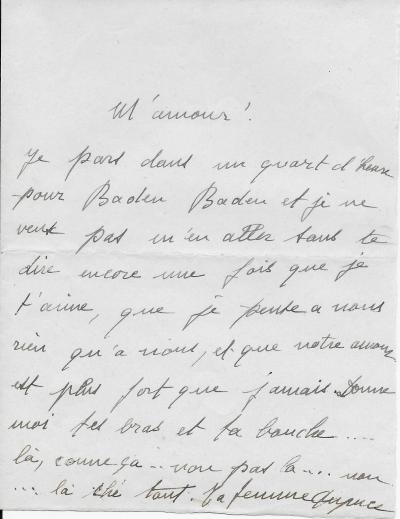 M'amour!
Je pars dans un quart d'heure
pour Baden Baden et je ne
veux pas m'en aller sans te
dire encore une fois que je
t'aime, que je pense a nous
rien qu'a nous, et que notre amour
est plus fort que jamais. Donne
moi tes bras et ta bouche ....
là, comme ça .. non pas la ... non
... là tout. Ta femme